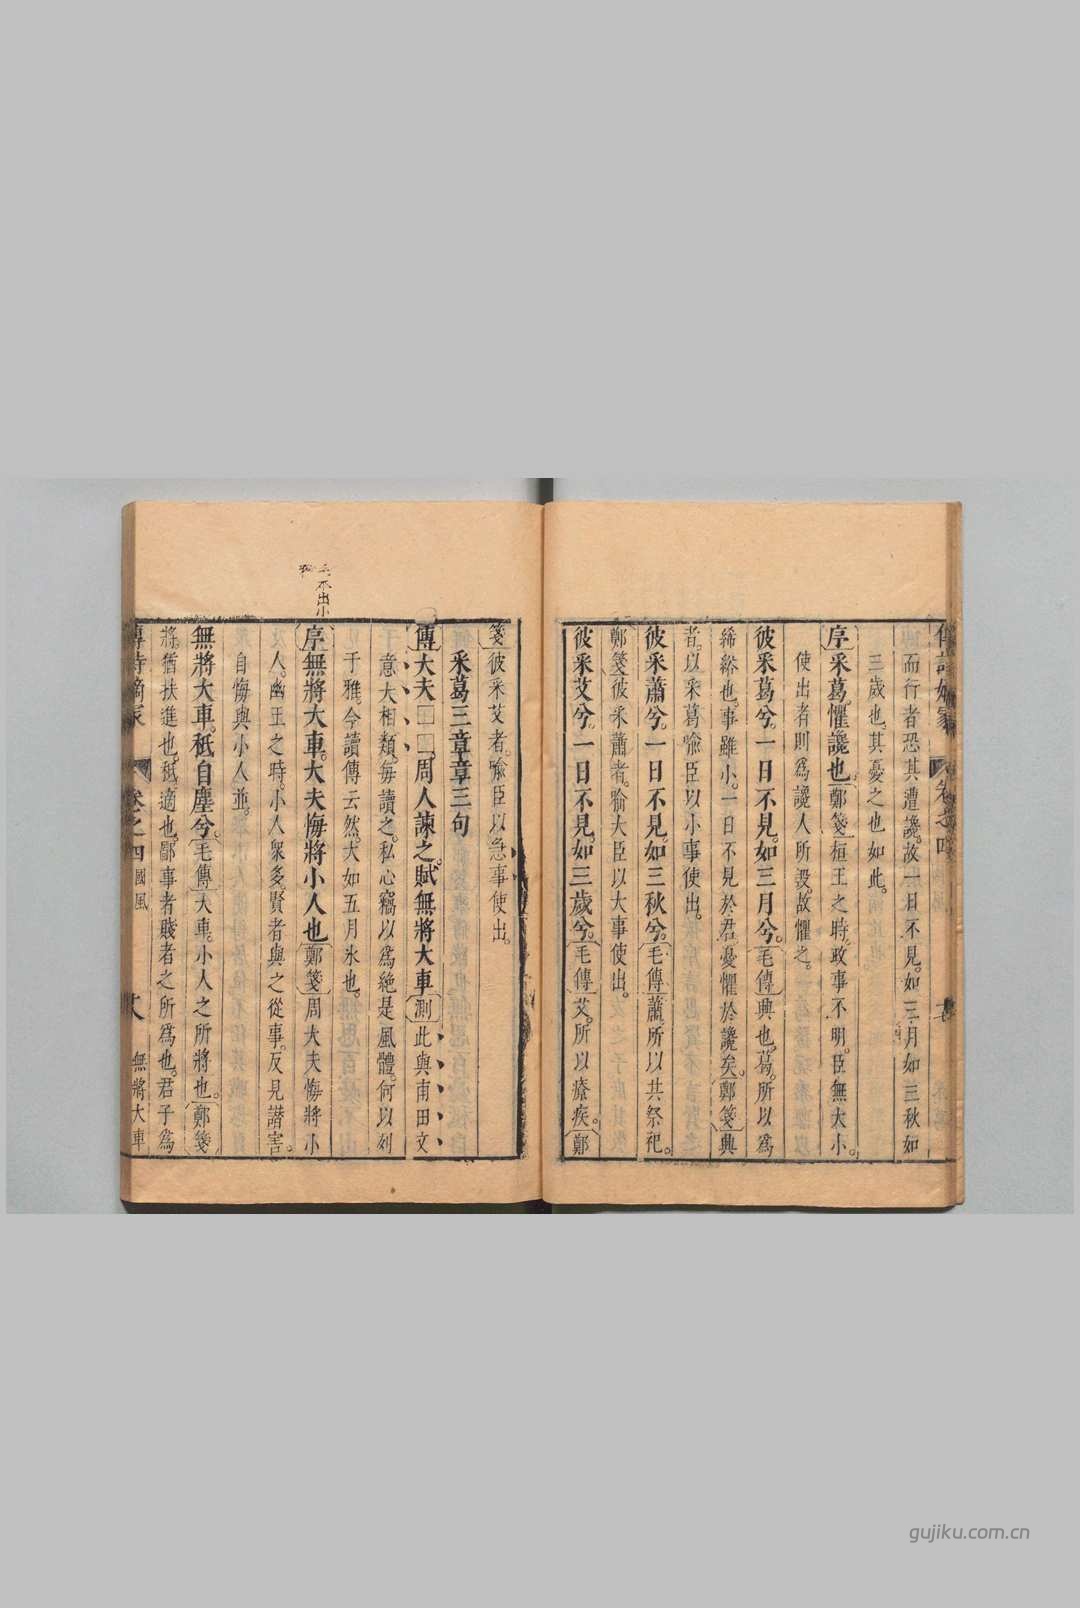 而行者恐其遭讒。故一日不見。如三月如三秋如
三歲也。其憂之也如此。
序采葛。懼讒也鄭箋桓王之時。政事不明。臣無大小。
使出者則爲讒人所毀。故懼之。
彼采葛兮。一日不見。如三月兮。毛傳興也。葛。所以爲
絺綌也。事雖小。一日不見於君。憂懼於讒矣。鄭箋興
者。以采葛喩臣以小事使出。
彼采蕭兮。一日不見。如三秋兮。毛傳蕭。所以共祭祀。
鄭箋彼采蕭者。喻大臣以大事使出。
彼采艾兮。一日不見。如三歲兮。毛傳艾。所以療疾。鄭
箋彼采艾者。喩臣以急事使出。
采葛三章章三句
傳大夫□□周人諫之。賦無將大車測此與甫田文
意大相類。每讀之。私心竊以爲絶是風體。何以列
于雅。今讀傳云然。大如五月氷也。
序無將大車。大夫悔將小人也鄭箋周大夫悔將小
人。幽王之時。小人衆多。賢者與之從事。反見譖害。
自悔與小人並。
無將大車。秖自塵兮。毛傳大車。小人之所將也。鄭箋
將。猶扶進也。秖。適也。鄙事者賤者之所爲也。君子爲
卷之四 國風 無將大車
gujiku.com.cn